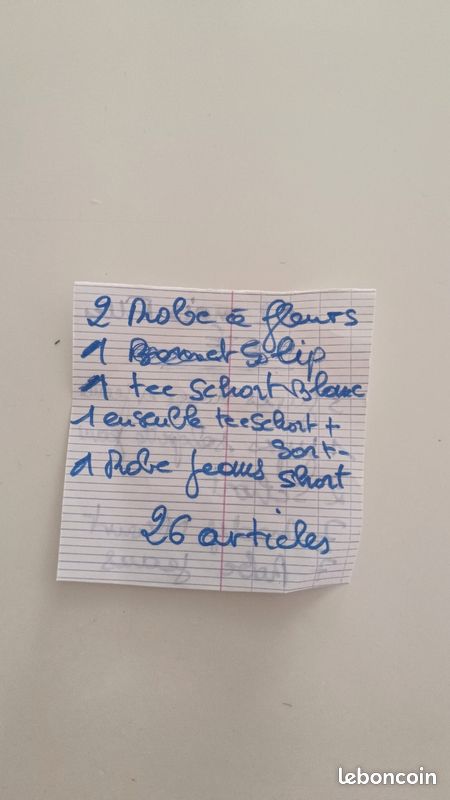 2 Robe à fleurs
1 slip
1 tee schort Blanc
1 ensemble tee schort +
sort -
1 Robe jeans short
26 articles
leboncoin